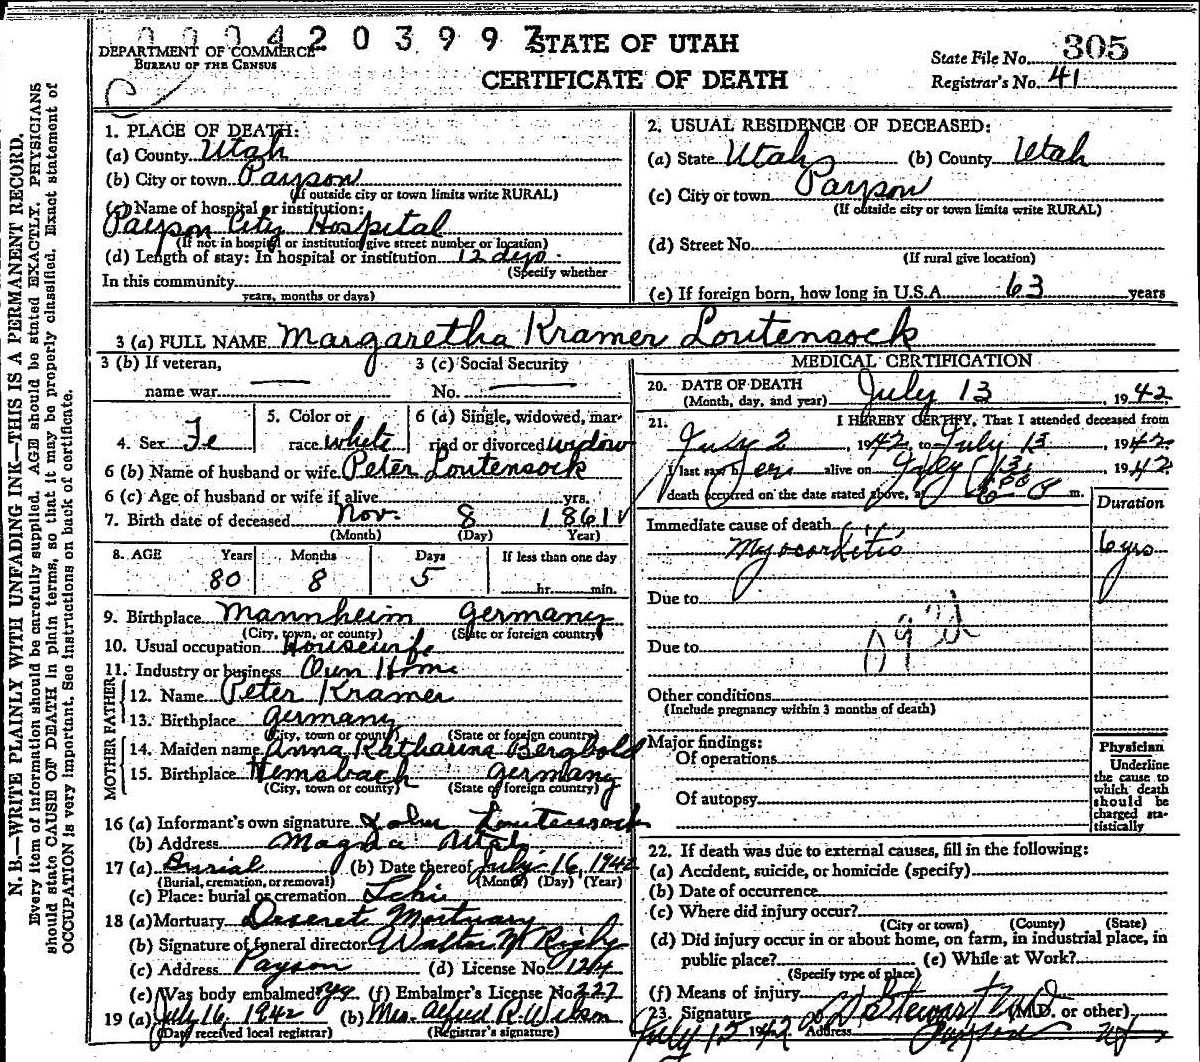 0904203997
STATE OF UTAH
CERTIFICATE OF DEATH
DEPARTMENT OF COMMERCE
BUREAU OF THE CENSUS
State File No. 305
Registrar's No. 41
N. B.—WRITE PLAINLY WITH UNFADING INK—THIS IS A PERMANENT RECORD.
Every item of information should be carefully supplied. AGE should be stated EXACTLY. PHYSICIANS
should state CAUSE OF DEATH in plain terms, so that it may be properly classified. Exact statement of
OCCUPATION is very important. See instructions on back of certificate.
1. PLACE OF DEATH:
(a) County Utah
(b) City or town Payson
(If outside city or town limits write RURAL)
(c) Name of hospital or institution:
Payson City Hospital
(If not in hospital or institution give street number or location)
(d) Length of stay: In hospital or institution 12 dys.
(Specify whether
In this community
years, months or days)
2. USUAL RESIDENCE OF DECEASED:
(a) State Utah (b) County Utah
(c) City or town Payson
(If outside city or town limits write RURAL)
(d) Street No.
(If rural give location)
(e) If foreign born, how long in U.S.A. 63 years
3 (a) FULL NAME Margaretha Kramer Loutensock
3 (b) If veteran,
name war
3 (c) Social Security
No.
4. Sex Fe
5. Color or
race white
6 (a) Single, widowed, mar-
ried or divorced widow
6 (b) Name of husband or wife Peter Loutensock
6 (c) Age of husband or wife if alive yrs.
7. Birth date of deceased Nov. 8 1861
(Month) (Day) Year)
8. AGE Years Months Days If less than one day
80 8 5 hr. min.
9. Birthplace Mannheim Germany
(City, town, or county) (State or foreign country)
10. Usual occupation Housewife
11. Industry or business Own Home
FATHER
12. Name Peter Kramer
13. Birthplace Germany
(City, town or county) (State or foreign country)
MOTHER
14. Maiden name Anna Katharina Bergbold
15. Birthplace Hemsbach Germany
(City, town or county) (State of foreign country)
16 (a) Informant's own signature John Loutensock
(b) Address Magna Utah
17 (a) Burial (b) Date thereof July 16, 1942
(Burial, cremation, or removal) (Month) (Day) (Year)
(c) Place: burial or cremation Lehi
18 (a) Mortuary Deseret Mortuary
(b) Signature of funeral director Walter M Rigby
(c) Address Payson (d) License No. 124
(e) Was body embalmed? yes (f) Embalmer's License No. 227
19 (a) July 16, 1942 (b) Mrs. Alfred R. Wilson
(Date received local registrar) (Registrar's signature)
MEDICAL CERTIFICATION
20. DATE OF DEATH
(Month, day, and year) July 13, 1942
21. I HEREBY CERTIFY, That I attended deceased from
July 2, 1942 to July 13, 1942
I last saw her alive on July 13, 1942
death occurred on the date stated above, at 6 00 P m.
Duration
Immediate cause of death
Myocarditis 6 yrs
Due to
Due to
Other conditions
(Include pregnancy within 3 months of death)
Major findings:
Of operations
Of autopsy
Physician
Underline
the cause to
which death
should be
charged sta-
tistically
22. If death was due to external causes, fill in the following:
(a) Accident, suicide, or homicide (specify)
(b) Date of occurrence
(c) Where did injury occur?
(City or town) (County) (State)
(d) Did injury occur in or about home, on farm, in industrial place, in
public place? (e) While at Work?
(Specify type of place)
(f) Means of injury
23. Signature Stewart MD (M.D. or other)
July 15 1942 Address Payson Ut